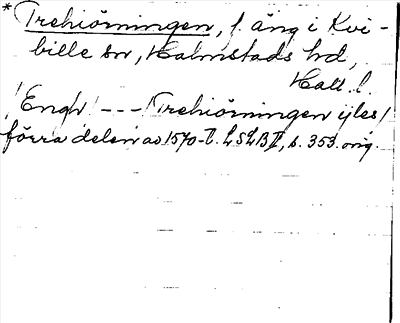 * Trehiörningen, f. äng i Kvi-
bille sn, Halmstads hd,
Hall. l.
/Engh/ --- /Trehiörningen ijles/
förra delen av 1570-t. LSLB II, s. 353. orig.